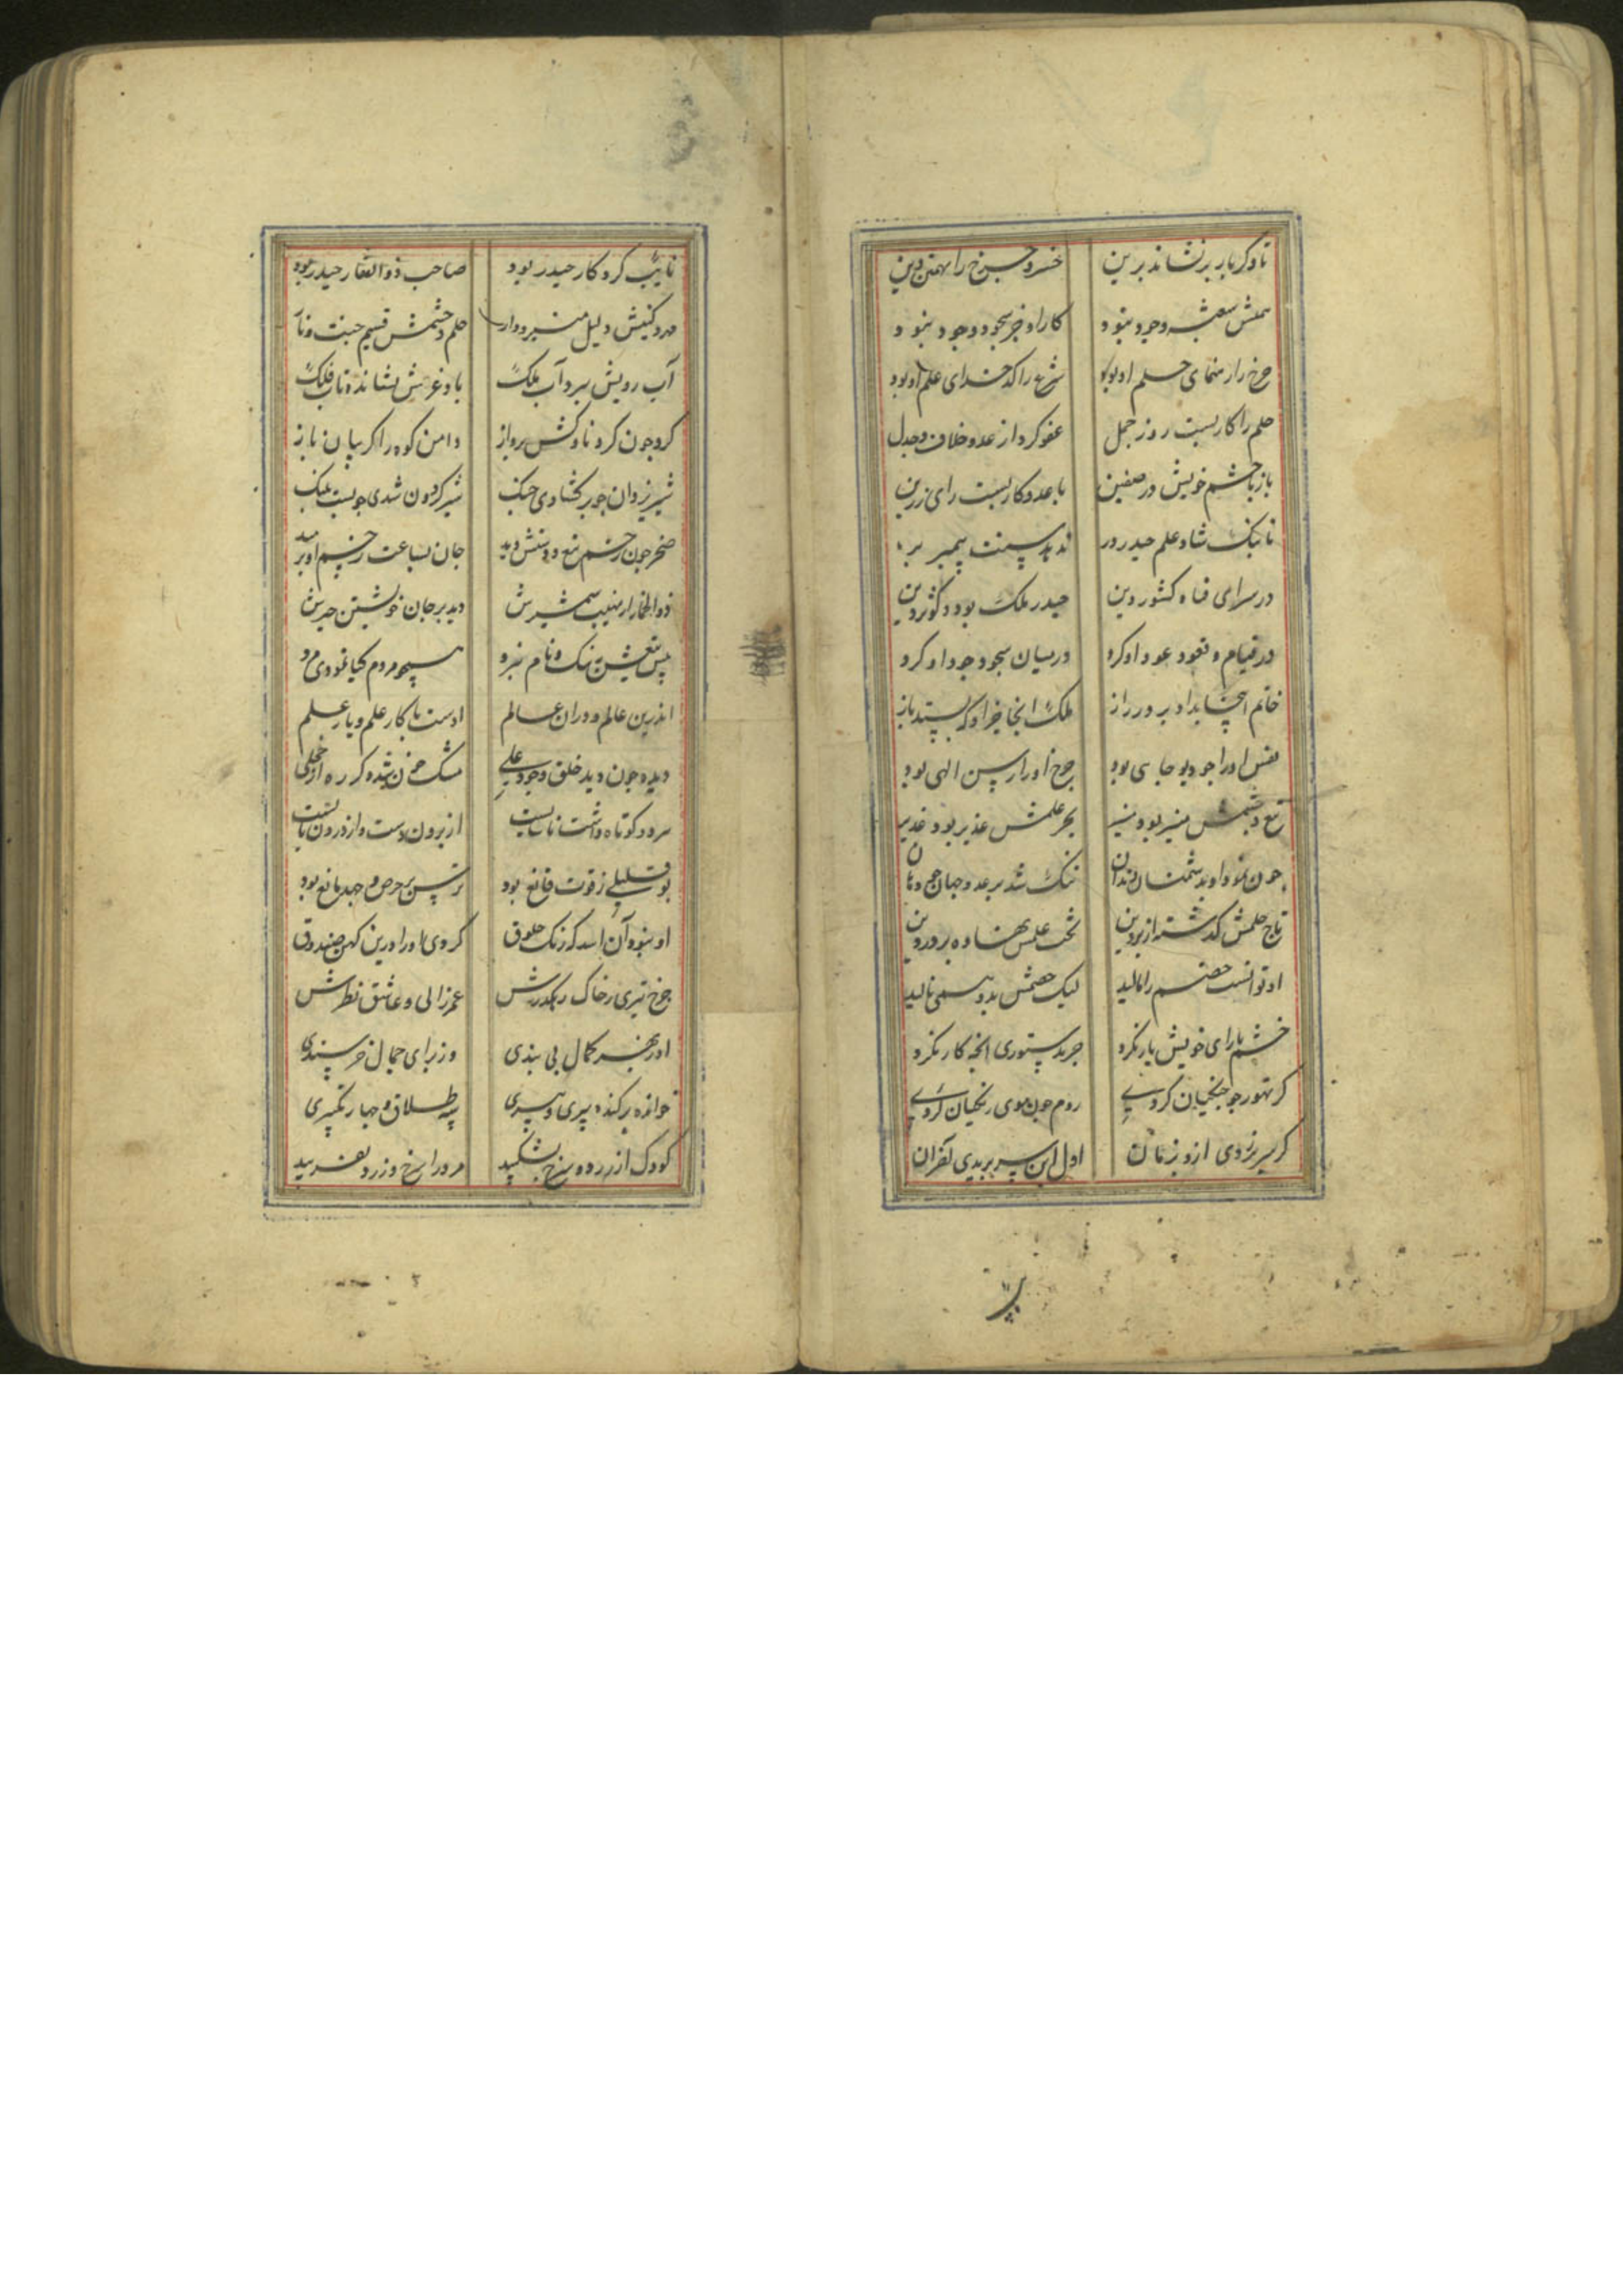 تا دگر باره برنشاند برین خسرو چرخ را تهمتن دین
همتش نعت وجود نبود کار او جز سجود و جود نبود
چرخ را رهنمای حلم او بود شرع را کدخدای علم او بود
حلم را کار بست روز جمل عفو کرد از عدو خلاف و جدل
باز با خشم خویش در صفین با عدو کار بست رای رزین
تا بنک شاه علم حیدر در ندهد سنت پیمبر بر
در سرای فناه کشور دین حیدر ملک بود و کوثر دین
در قیام و قعود عود او کرد در میان سجود جود او کرد
خاتم اینجا بداد بر در راز ملک آنجا خرد که بستد باز
نفس او را چو دیو جاسی بود چرخ او را رسن الهی بود
تیغ خشمش منیر بود منیر بحر علمش غدیر بود غدیر
چون نمود او بدشمنان دندان تنک شد بر عدو جهان چو دهان
تاج حلمش گذشته از پروین تخت علمش نهاده بر در دین
او توانست خصم را مالید لیک خصمش بدو همی نالید
خشم با رای خویش یار نکرد جز بدستوری آنچه کار نکرد
گر تهور چو جنگیان کردی روم چون موی زنگیان کردی
گر سر بزدی ازو بزمان اول این سر بریدی آنقران
پر
نایب کردگار حیدر بود صاحب ذوالفقار حیدر بود
مهر و کینش دلیل منبر و دار حلم و خشمش قسیم جنت و نار
آب رویش ببرد آب ملک باد عزش نشانده تاب فلک
کرد چون کرد ناوکش پرواز دامن کوه را گریبان باز
شیر یزدان چو برگشادی چنک شیر گردون شدی چو پشت پلنک
صخر چون زخم تیغ و دستش دید جان بساعت زخم او برمید
ذوالخمار از نهیب شمشیرش دید بر جان خویشتن چیرش
پیش تیغش ننک و نام نبرد همچو مردم کیا نمودی مرد
اندرین عالم و دران عالم اوست با کار علم و یار علم
دیده چون دید خلق وجود علی مشک خون شده کره از خجلی
مرد کوتاه داشت نابایست از برون دست و از درون بایست
بوقلیلی ز قوت قانع بود ترس بر حرص و جهد مانع بود
او نبود آن اسد که رنک خلوق کردی او را درین کهن صندوق
چرخ تیری ز خاک رهگذرش عمر زالی و عاشق نظرش
او ز بهر کمال بی بندی وز برای جمال خرسندی
خوانده بر کنده پیری و سیری سه طلاق و چهار تکبیری
کودک از زرد و سرخ بشکیبد مرد را سرخ و زرد نفریبد